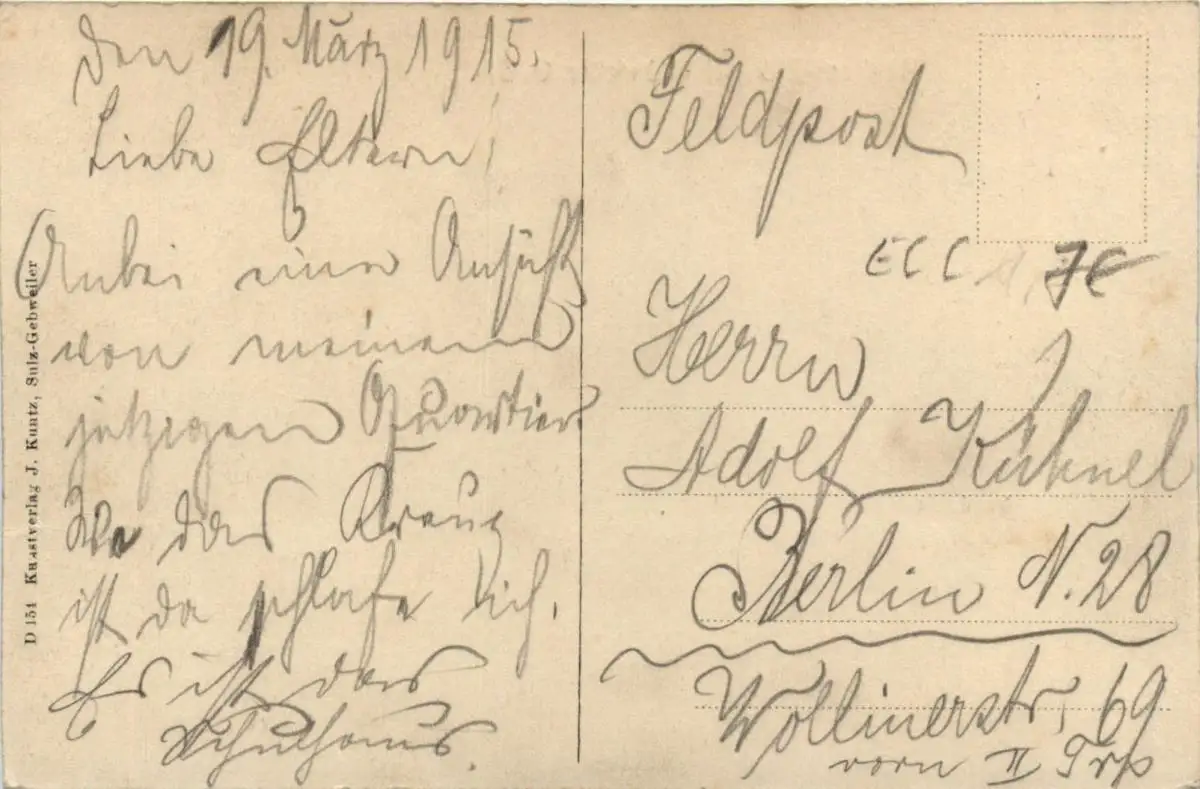 Den 19. März 1915.
Liebe Eltern!
Anbei eine Ansicht
von meinem
jetzigen Quartier
Wo das Kreuz
ist da schlafe ich.
Es ist das
Schulhaus.
D 154 Kunstverlag J. Kuntz, Sulz-Gebweiler
Feldpost
Herrn
Adolf Kühnel
Berlin N. 28
Wollinerstr. 69
vorn II Trp